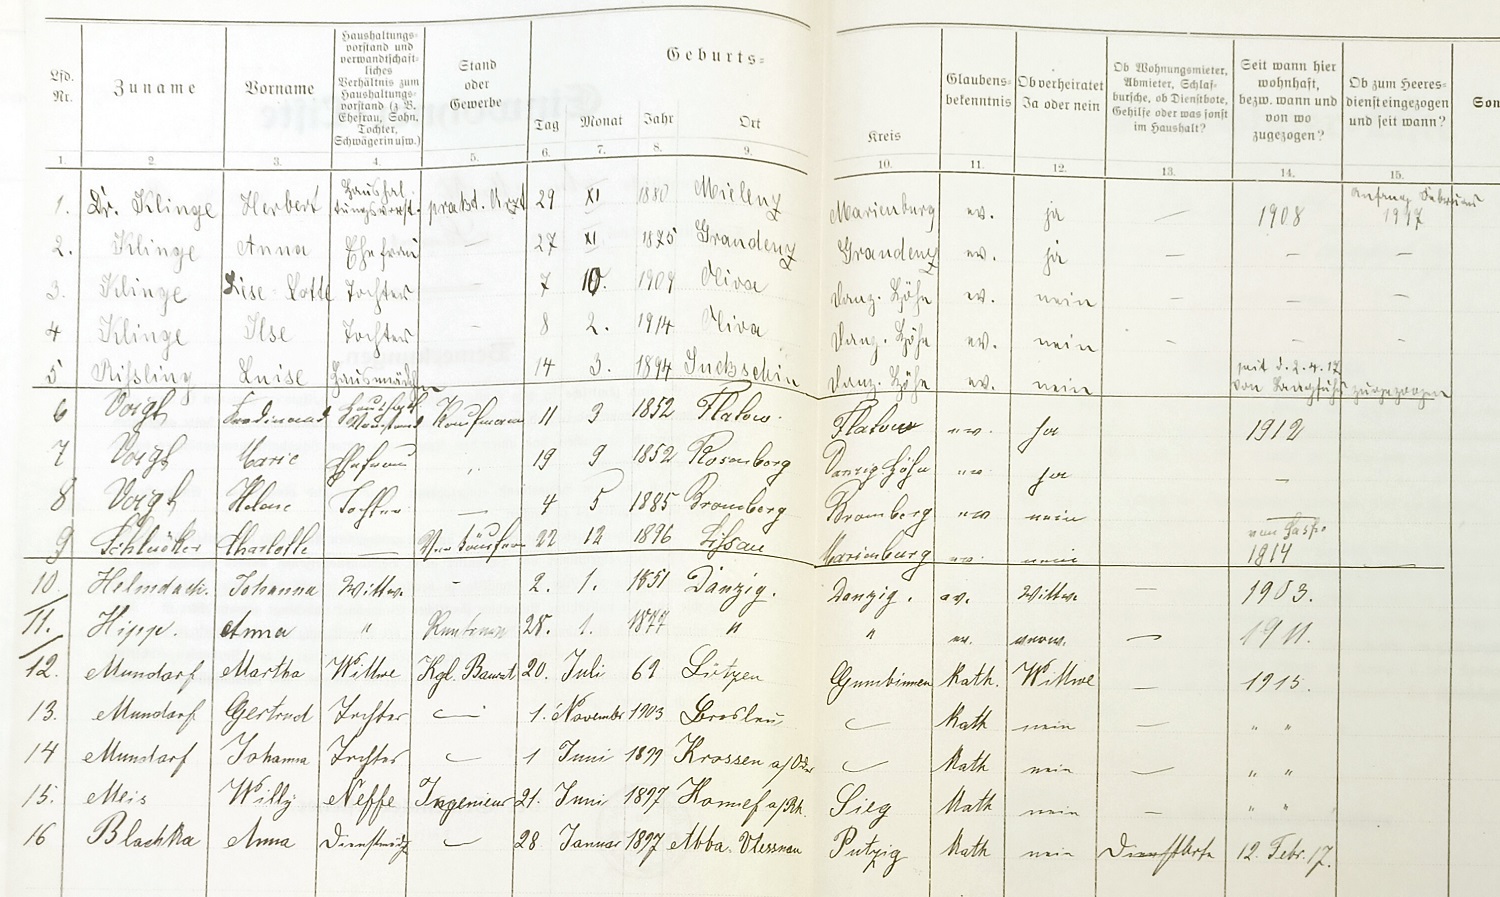 Lfd. Nr. Zuname Vorname Haushaltungsvorstand und verwandschaftliches Verhältnis zum Haushaltungsvorstand (z. B. Ehefrau, Sohn, Tochter, Schwägerin usw.) Stand oder Gewerbe Geburts= Tag Monat Jahr Ort Kreis Glaubensbekenntnis Ob verheiratet Ja oder nein Ob Wohnungsmieter, Abmieter, Schlafbursche, ob Dienstbote, Gehilfe oder was sonst im Haushalt? Seit wann hier wohnhaft, bezw. wann und von wo zugezogen? Ob zum Heeresdienst eingezogen und seit wann?
1. 2. 3. 4. 5. 6. 7. 8. 9. 10. 11. 12. 13. 14. 15.
1. Dr. Klinge Herbert Haushaltungsvorst. prakt. Arzt 29 XI 1880 Mielenz Marienburg ev. ja — 1908 Anfang Februar 1917
2. Klinge Anna Ehefrau — 27 XI 1875 Graudenz Graudenz ev. ja — — —
3. Klinge Lise Lotte Tochter — 7 10. 1909 Oliva Danz. Höhe ev. nein — — —
4 Klinge Ilse Tochter — 8 2. 1914 Oliva Danz. Höhe ev. nein — — —
5 Rißling Luise Hausmädchen 14 3. 1894 Suckschin Danz. Höhe ev. nein seit d. 2.4.17 von Langfuhr zugezogen
6 Voigt Ferdinand Haushalt Vorstand Kaufmann 11 3 1852 Flatow. Flatow ev. ja 1912
7 Voigt Marie Ehefrau 19 9 1852 Rosenberg Danzig. Höhe ev ja —
8 Voigt Helene Tochter — 4 5 1885 Bromberg Bromberg ev nein
9 Charlotte — 22 12 1896 Lissau Marienburg ev. nein 1914
10. Helmdach. Johanna Wittwe - 2. 1. 1851 Danzig. Danzig. ev. Wittwe — 1903.
11. Hipp. Anna " 28. 1. 1877 " " ev. — 1911.
12. Mundorf Martha Wittwe Kgl. Baurat 20. Juli 62 Lötzen Gumbinnen Kath. Wittwe — 1915.
13. Mundorf Gertrud Tochter — 1. November 1903 Breslau — Kath nein — " "
14 Mundorf Johanna Tochter — 1 Juni 1899 Krossen a/Oder — Kath nein — " "
15. Meis Willy Neffe Ingenieur 21. Juni 1897 Honnef a/Rh. Sieg Kath nein — " "
16 Blachka Anna Dienstmdg — 28 Januar 1897 Abba. Putzig Kath nein Dienstbote 12. Febr. 17.